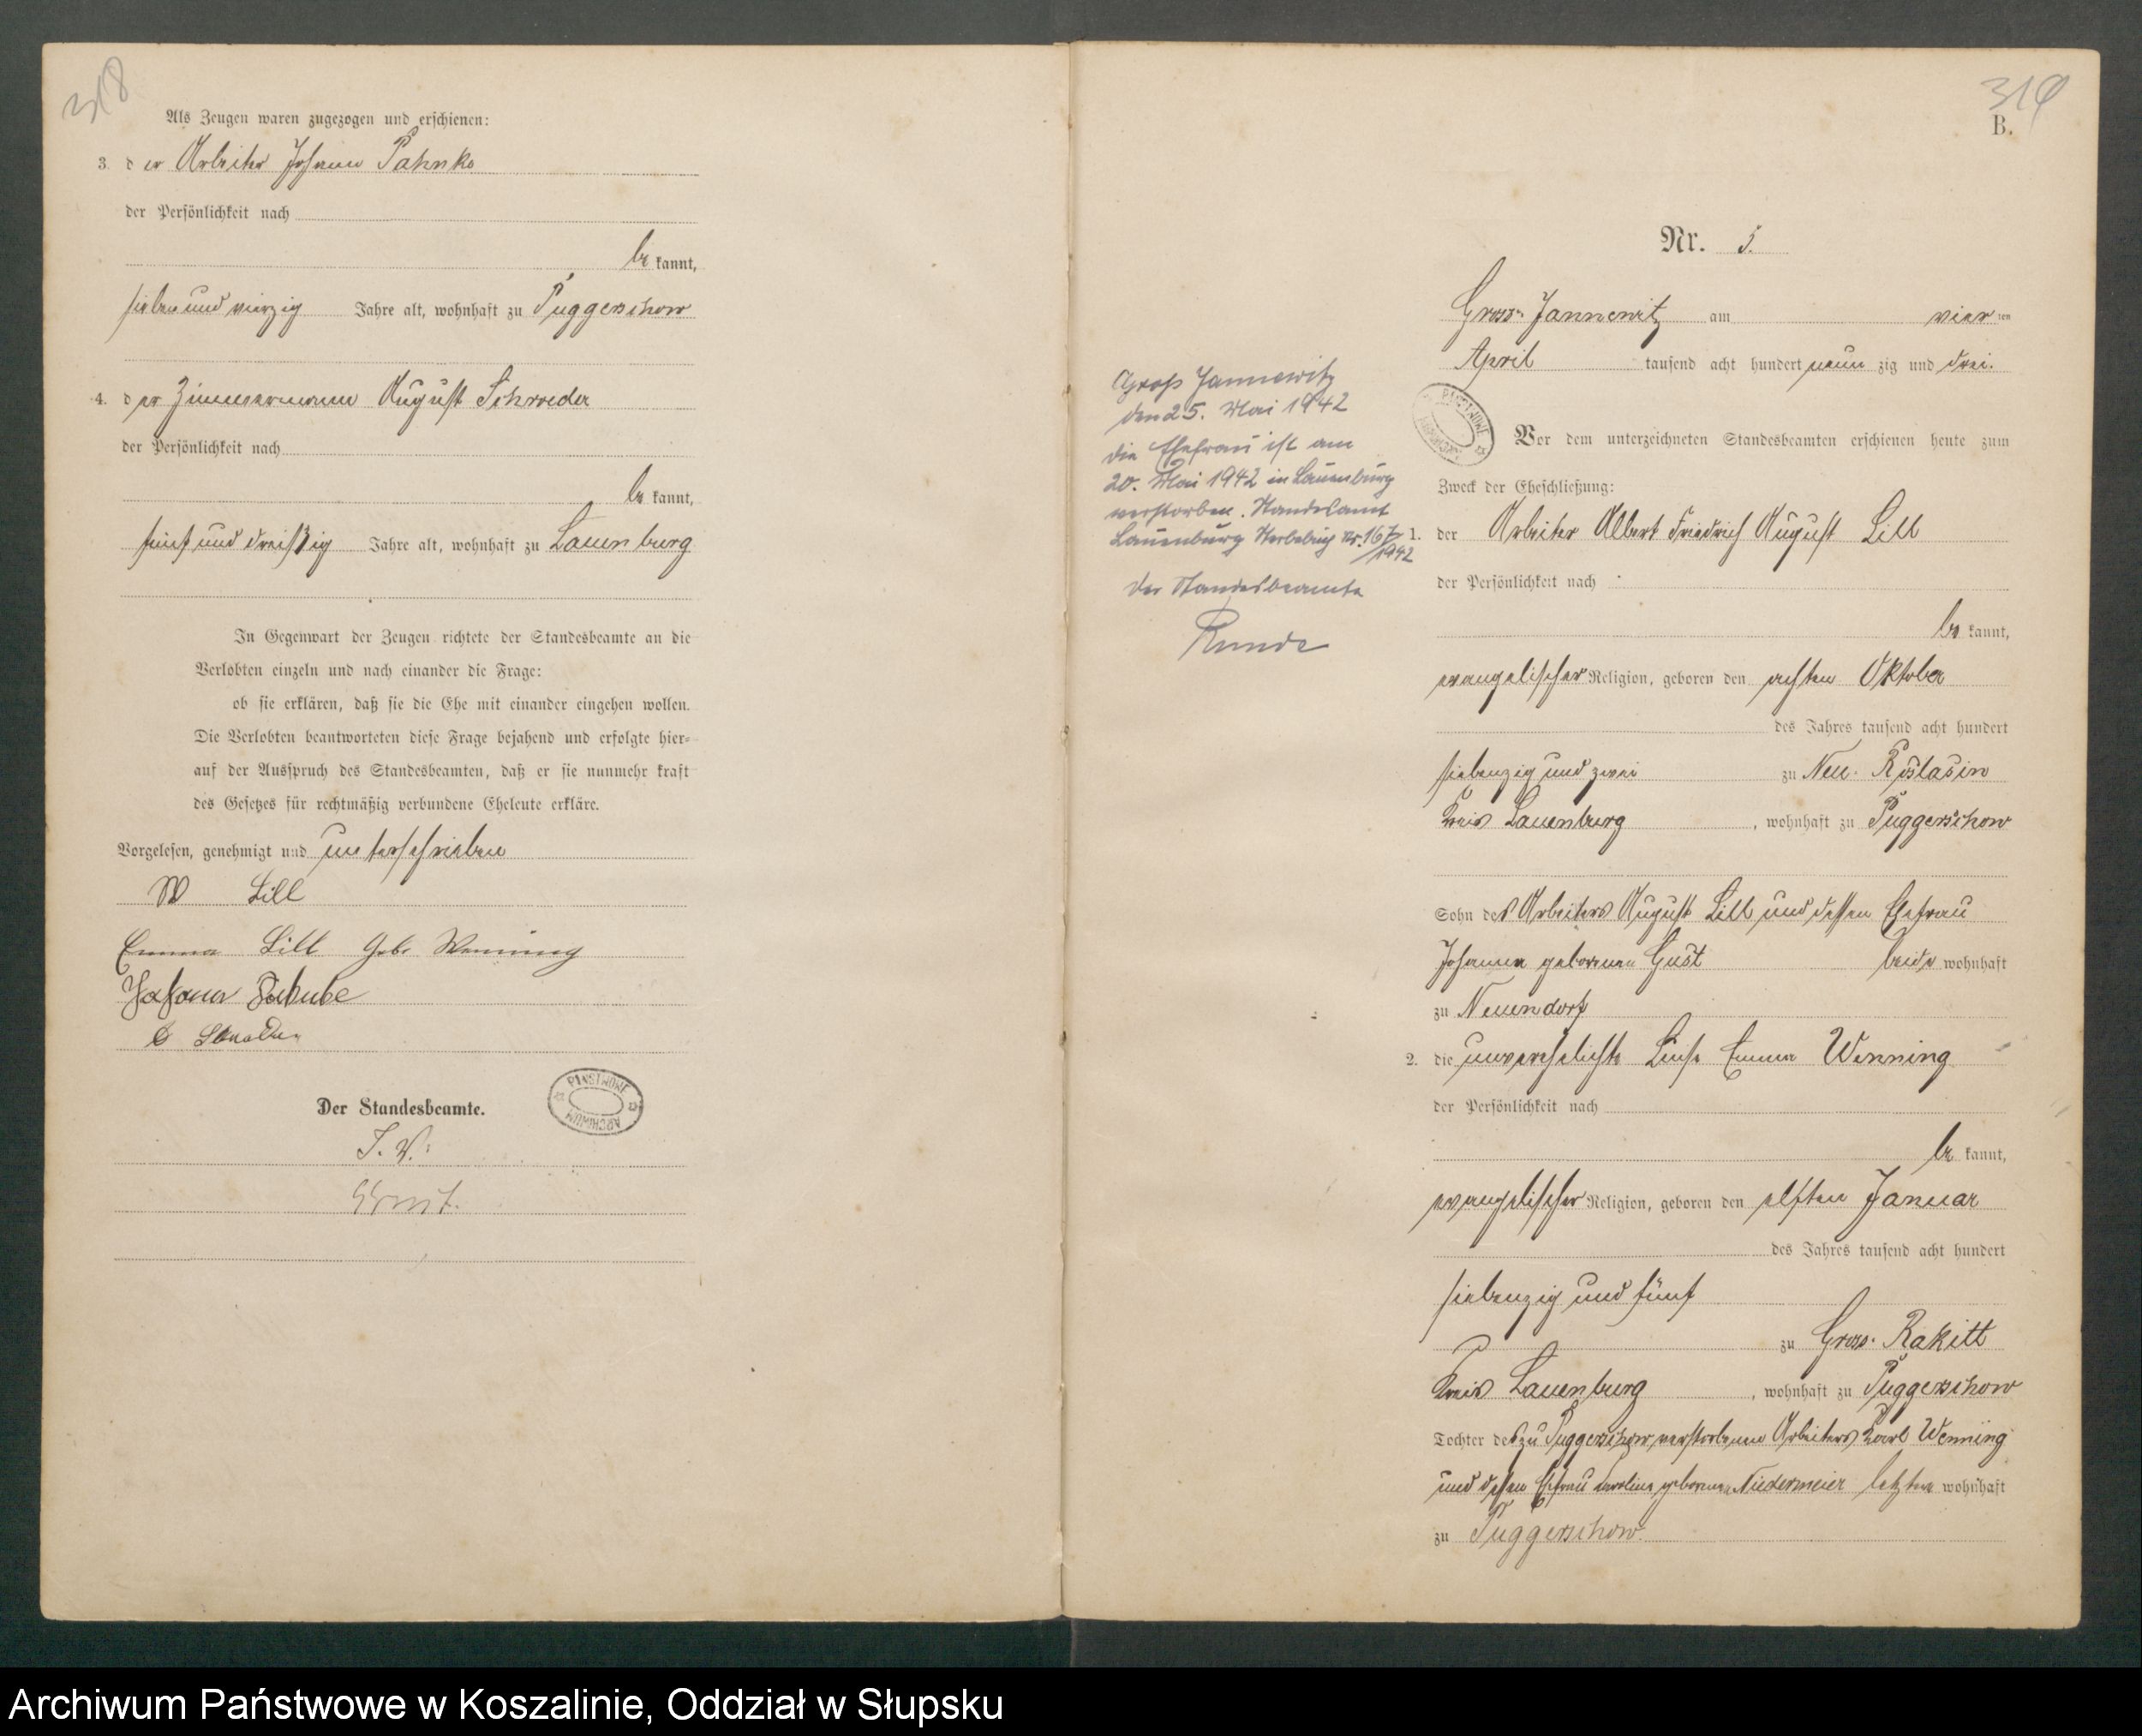 318
Als Zeugen waren zugezogen und erschienen:
3. der Arbeiter Johann Pahnke
der Persönlichkeit nach
be kannt,
sieben und vierzig Jahre alt, wohnhaft zu Puggerschow
4. der Zimmermann August Schroeder
der Persönlichkeit nach
be kannt,
fünf und dreißig Jahre alt, wohnhaft zu Lauenburg
In Gegenwart der Zeugen richtete der Standesbeamte an die
Verlobten einzeln und nach einander die Frage:
ob sie erklären, daß sie die Ehe mit einander eingehen wollen.
Die Verlobten beantworteten diese Frage bejahend und erfolgte hier-
auf der Ausspruch des Standesbeamten, daß er sie nunmehr kraft
des Gesetzes für rechtmäßig verbundene Eheleute erkläre.
Vorgelesen, genehmigt und unterschrieben
Lill
Emma Lill geb. Wenning
Johann
Der Standesbeamte.
PAŃSTWOWE ARCHIWUM
I. V.:
319
B.
Nr. 5.
Gross-Jannewitz am vier ten
April tausend acht hundert neun zig und drei.
PAŃSTWOWE ARCHIWUM
Vor dem unterzeichneten Standesbeamten erschienen heute zum
Zweck der Eheschließung:
1. der Arbeiter Albert Friedrich August Lill
der Persönlichkeit nach
be kannt,
evangelischer Religion, geboren den achten Oktober
des Jahres tausend acht hundert
siebenzig und zwei zu Neu-Roslasin
Kreis Lauenburg, wohnhaft zu Puggerschow
Sohn des Arbeiters August Lill und dessen Ehefrau
Johanna geborenen Gust beide wohnhaft
zu Neuendorf
2. die unverehelichte Luise Emma Wenning
der Persönlichkeit nach
be kannt,
evangelischer Religion, geboren den elften Januar
des Jahres tausend acht hundert
siebenzig und fünf
zu Gross-Rakitt
Kreis Lauenburg, wohnhaft zu Puggerschow
Tochter des zu Puggerschow verstorbenen Arbeiters Karl Wenning
und dessen Ehefrau Karoline geborenen Niedermeier letztere wohnhaft
zu Puggerschow.
Groß Jannewitz
den 25. Mai 1942
die Ehefrau ist am
20. Mai 1942 in Lauenburg
verstorben. Standesamt
Lauenburg Sterbebuch Nr. 167/1942
Der Standesbeamte
Runde
Archiwum Państwowe w Koszalinie, Oddział w Słupsku